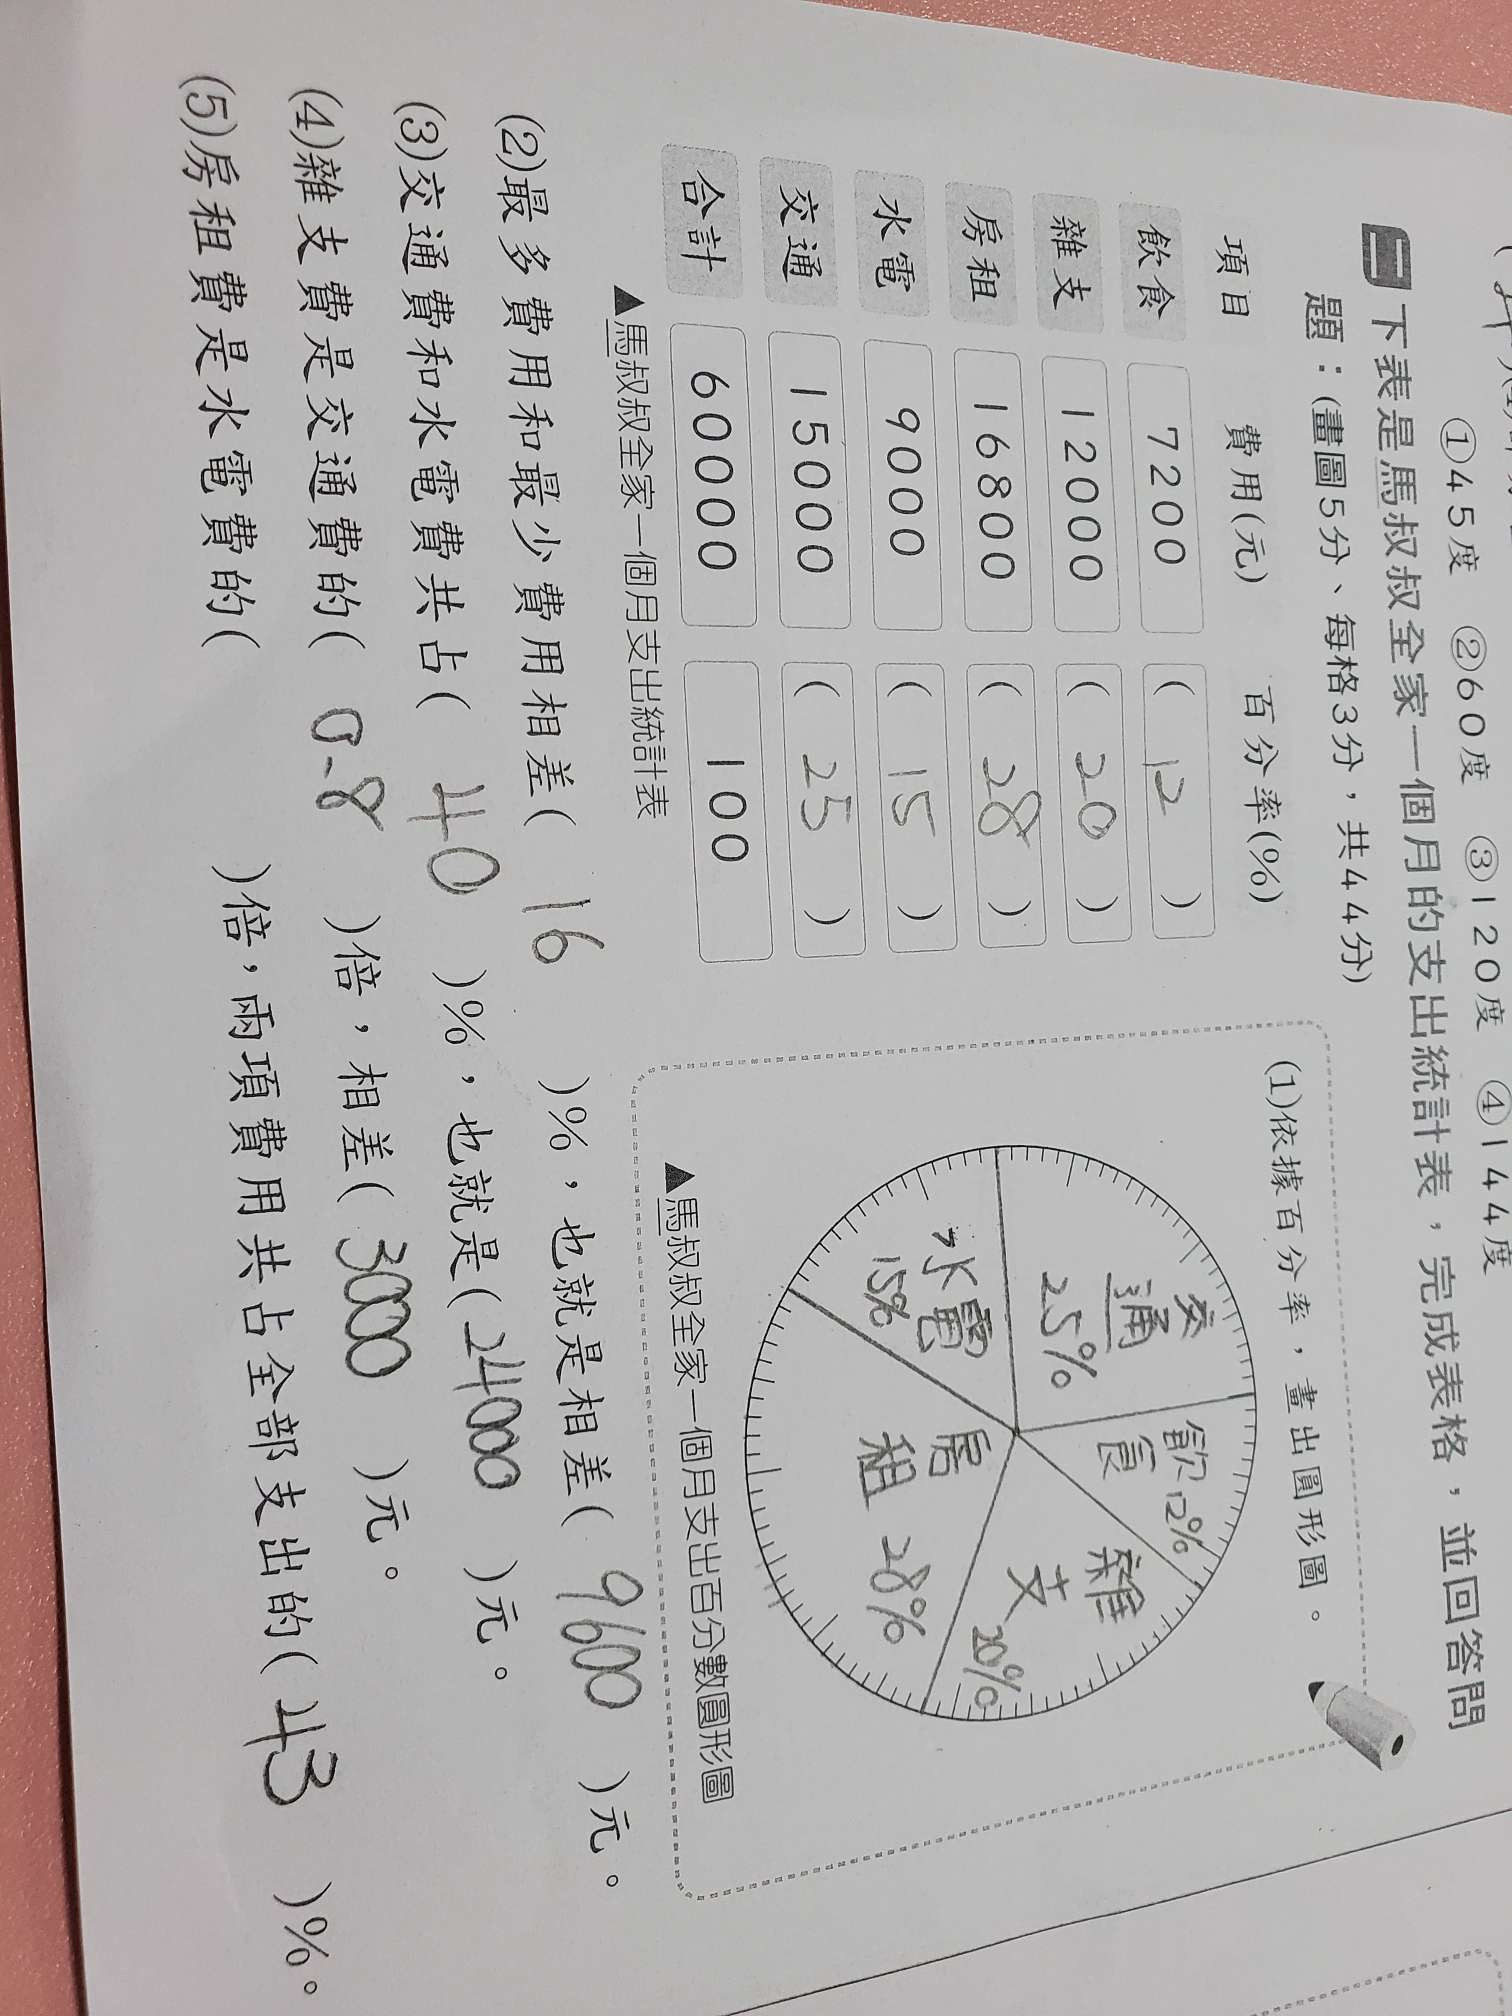 ①45度 ②60度 ③120度 ④144度
二 下表是馬叔叔全家一個月的支出統計表，完成表格，並回答問
題：(畫圖5分、每格3分，共44分)
項目 費用(元) 百分率(%)
飲食 7200 ( 12 )
雜支 12000 ( 20 )
房租 16800 ( 28 )
水電 9000 ( 15 )
交通 15000 ( 25 )
合計 60000 100
▲馬叔叔全家一個月支出統計表
(1)依據百分率，畫出圓形圖。
交通 25%
飲食 12%
雜支 20%
房租 28%
水電 15%
▲馬叔叔全家一個月支出百分數圓形圖
(2)最多費用和最少費用相差( 16 )%，也就是相差( 9600 )元。
(3)交通費和水電費共占( 40 )%，也就是( 24000 )元。
(4)雜支費是交通費的( 0.8 )倍，相差( 3000 )元。
(5)房租費是水電費的( )倍，兩項費用共占全部支出的( 43 )%。